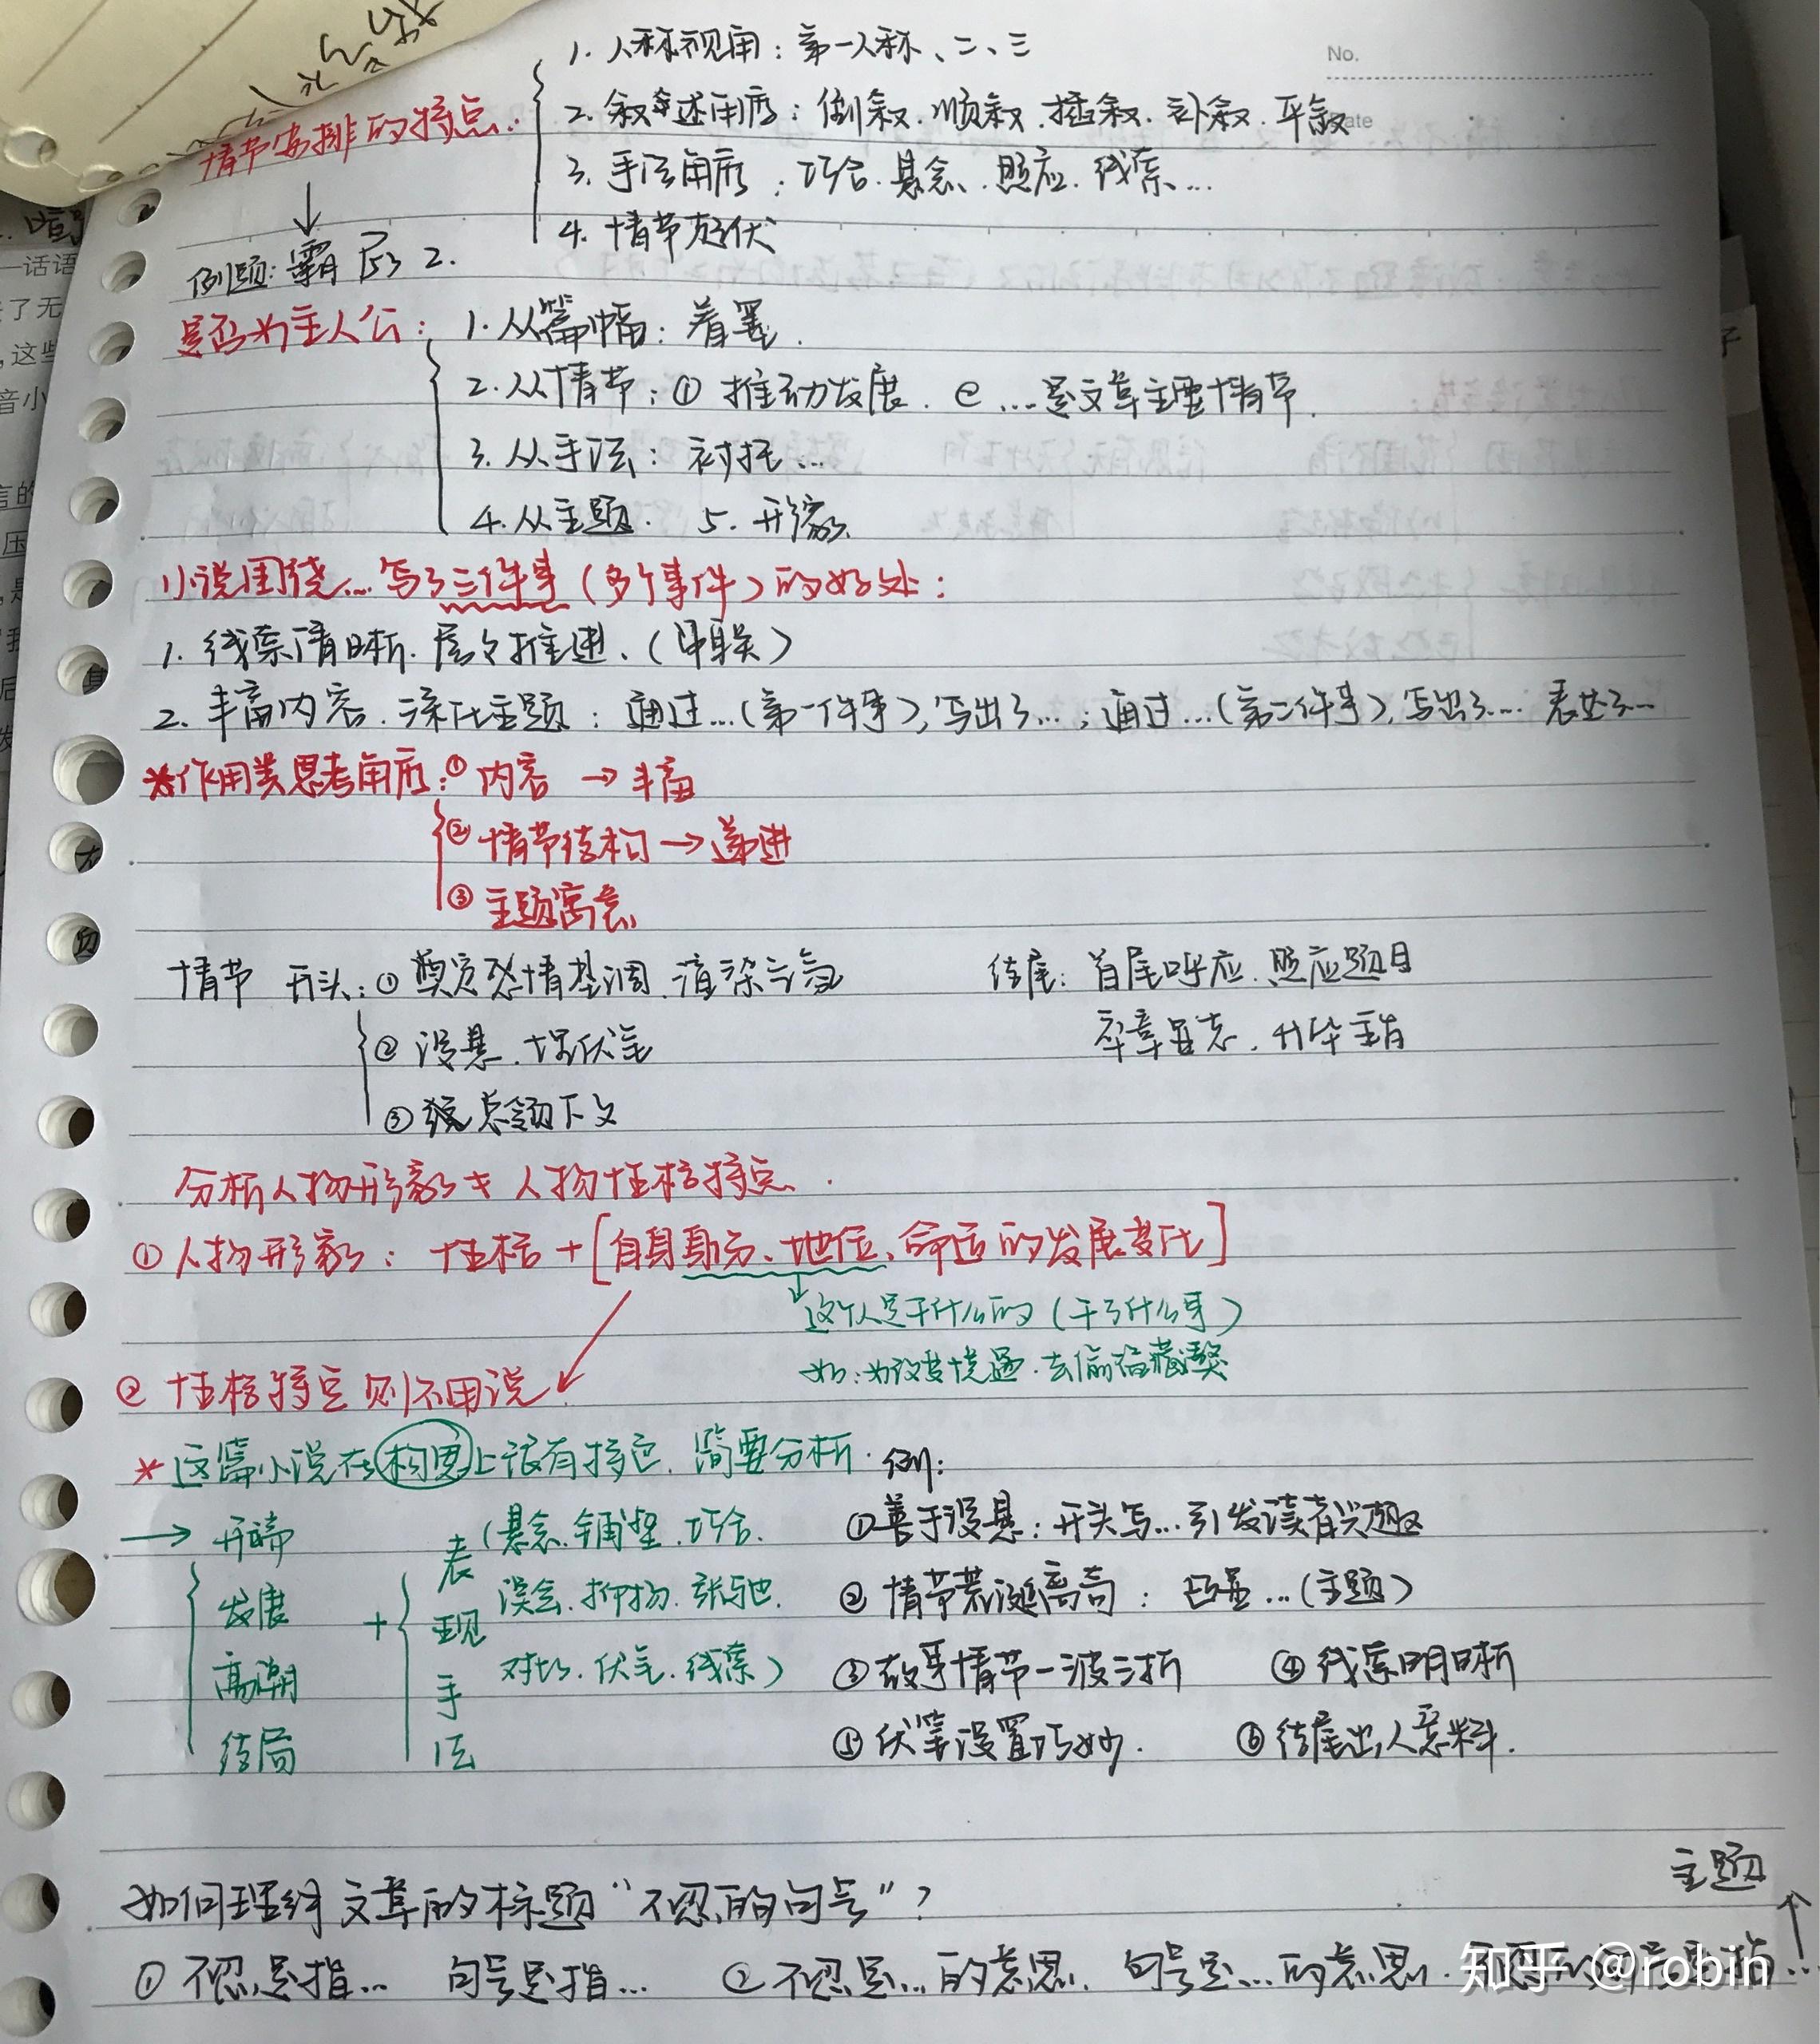 No.
1. 人称视角：第一人称、二、三
情节安排的特点：
2. 叙述角度：倒叙．顺叙．插叙．补叙．平叙
3. 手法角度：巧合．悬念．照应．线索…
4. 情节起伏
例题：霸 P53 2.
是否为主人公：
1. 从篇幅：着墨．
2. 从情节：① 推动发展．② …是文章主要情节．
3. 从手法：衬托…
4. 从主题． 5. 形象
小说围绕…写了三件事（多个事件）的好处：
1. 线索清晰．层层推进．（串联）
2. 丰富内容．深化主题：通过…（第一件事），写出了…；通过…（第二件事），写出了… 表达了…
*作用类思考角度：① 内容 → 丰富
② 情节结构 → 递进
③ 主题寓意
情节 开头：① 奠定感情基调．渲染气氛
结尾：首尾呼应．照应题目
② 设悬．埋伏笔
卒章显志．升华主旨
③ 总领下文
分析人物形象≠人物性格特点．
① 人物形象：性格＋[自身身份、地位、命运的发展变化]
这个人是干什么的（干了什么事）
如：为改变境遇．去偷猎藏獒
② 性格特点则不用说
*这篇小说在构思上很有特色．简要分析． 例：
→ 开端
发展
高潮
结局
＋
表现手法
（悬念．铺垫．巧合．
误会．抑扬．张弛．
对比．伏笔．线索）
① 善于设悬：开头写…引发读者兴趣
② 情节荒诞离奇：凸显…（主题）
③ 故事情节一波三折 ④ 线索明晰
⑤ 伏笔设置巧妙． ⑥ 结尾出人意料．
主题
如何理解文章的标题“不忍的句号”？
① 不忍是指… 句号是指… ② 不忍是…的意思．句号是…的意思．
知乎 @robin